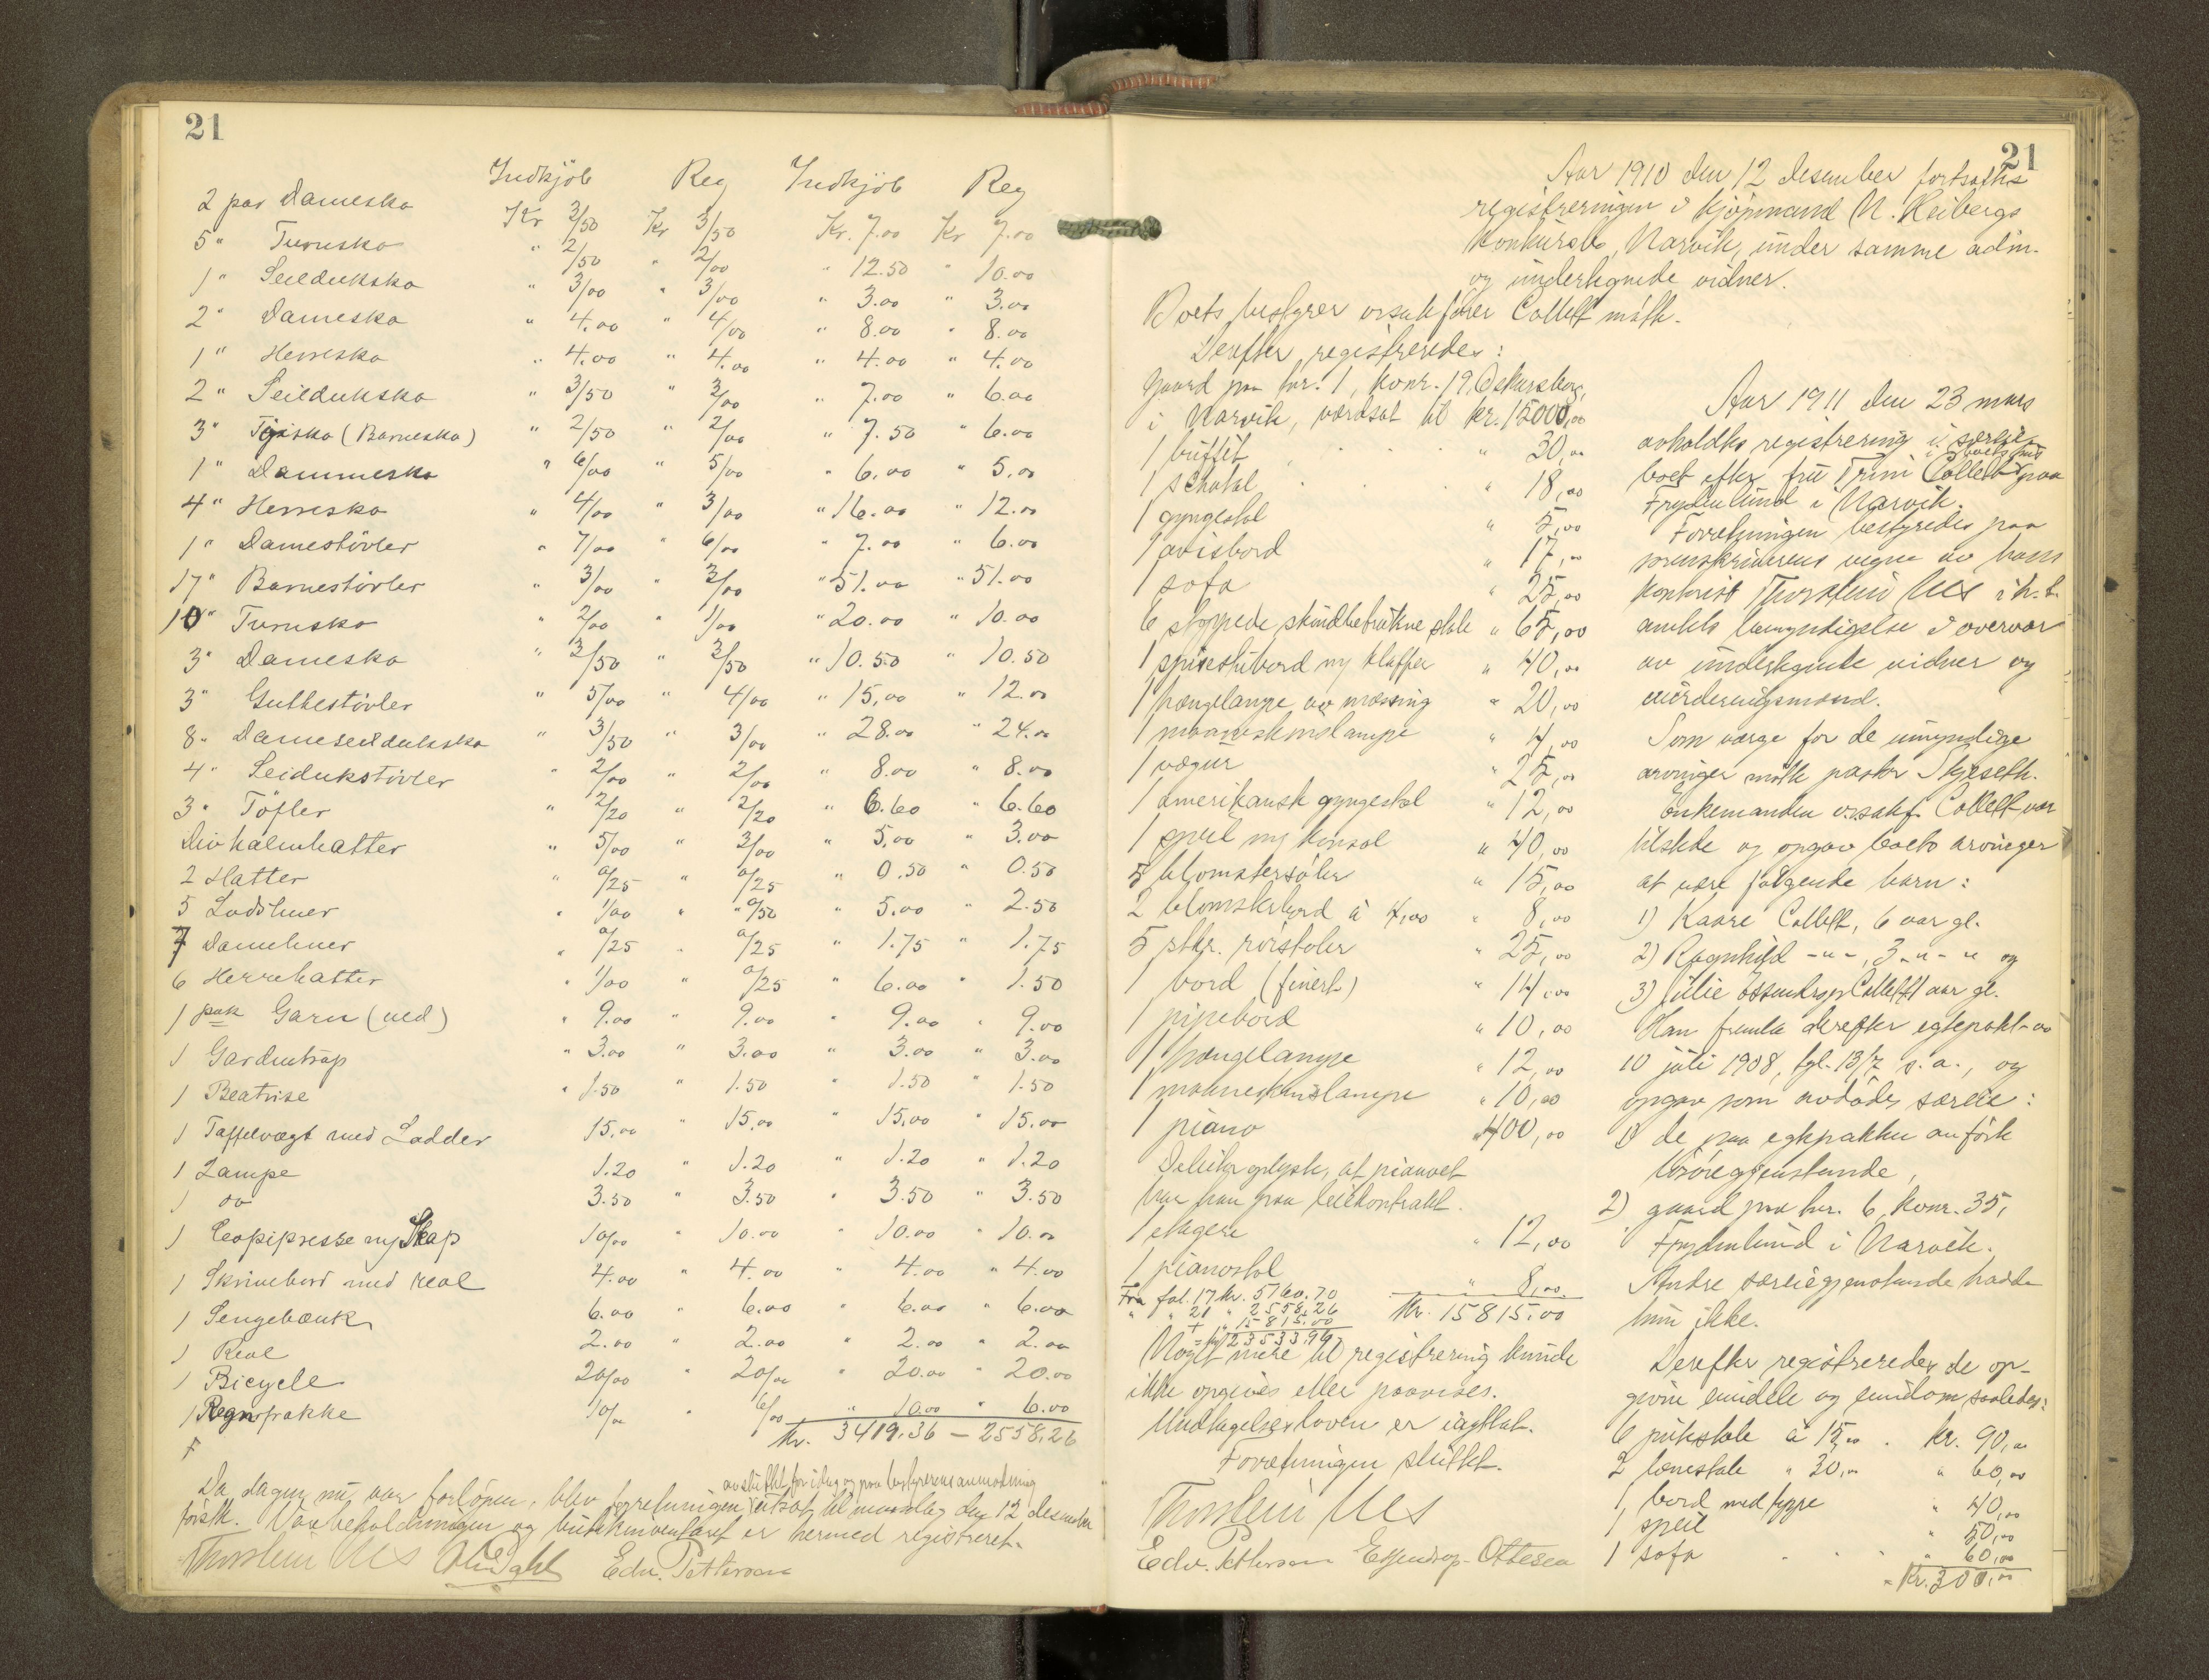 21
Indkjöb Reg Indkjöb Reg
2 par Damesko Kr 3/50 Kr 3/50 Kr. 7.00 Kr 7.00
5 " Turnsko " 2/50 " 2/00 " 12.50 " 10.00
1 " Seilduksko " 3/00 " 3/00 " 3.00 " 3.00
2 " Damesko " 4.00 " 4/00 " 8.00 " 8.00
1 " Herresko " 4.00 " 4.00 " 4.00 " 4.00
2 " Seilduksko " 3/50 " 3/00 " 7.00 " 6.00
3 " Töisko (Barnesko) " 2/50 " 2/00 " 7.50 " 6.00
1 " Dammesko " 6/00 " 5/00 " 6.00 " 5.00
4 " Herresko " 4/00 " 3/00 " 16.00 " 12.00
1 " Damestövler " 7/00 " 6/00 " 7.00 " 6.00
17 " Barnestövler " 3/00 " 3/00 " 51.00 " 51.00
10 " Turnsko " 2/00 " 1/00 " 20.00 " 10.00
3 " Damesko " 3/50 " 3/50 " 10.50 " 10.50
3 " Guttestövler " 5/00 " 4/00 " 15,00 " 12.00
8 " Dameseilduksko " 3/50 " 3/00 " 28.00 " 24.00
4 " Seidukstövler " 2/00 " 2/00 " 8.00 " 8.00
3 " Töfler " 2/20 " 2/20 " 6.60 " 6.60
Div halmhatter " 5/00 " 3/00 " 5,00 " 3.00
2 Hatter " 0/25 " 0/25 " 0.50 " 0.50
5 Lodsluer " 1/00 " 0/50 " 5.00 " 2.50
7 Dameluer " 0/25 " 0/25 " 1.75 " 1.75
6 Herrehatter " 1/00 " 0/25 " 6.00 " 1.50
1 pak Garn (uld) " 9.00 " 9.00 " 9.00 " 9.00
1 Gardintrap " 3.00 " 3.00 " 3.00 " 3.00
1 Beatrise " 1.50 " 1.50 " 1.50 " 1.50
1 Taffelvægt med Lodder 15,00 " 15,00 " 15,00 " 15.00
1 Lampe 1.20 " 1.20 " 1.20 " 1.20
1 do 3.50 " 3.50 " 3.50 " 3.50
1 Copipresse m/ Skap 10/00 " 10.00 " 10.00 " 10.00
1 Skrivebord med reol 4.00 " 4.00 " 4.00 " 4.00
1 Sengebænk 6.00 " 6.00 " 6.00 " 6.00
1 Reol 2.00 " 2.00 " 2.00 " 2.00
1 Bicycle 20/00 " 20/00 " 20.00 " 20.00
1 Regnfrakke 10/00 " 6/00 " 10.00 " 6.00
Kr. 3419.36 — 2558,26
avsluttet for idag og paa bestyrerens anmodning
Da dagen nu var forlöpen, blev forretningen utsat til mandag den 12 desember
förstk. Varebeholdningen og butikinventaret er hermed registreret.
Thorstein Ues Ole Dahl Edv. Pettersen
21
Aar 1910 den 12 desember fortsattes
registreringen i kjöpmand N. Heibergs
konkursbo, Narvik, under samme adm.
og undertegnede vidner.
Boets bestyrer orsakförer Collett mötte.
Derefter registreredes:
Gaard paa bnr. 1, konr. 19, Oskarsborg,
i Narvik, værdsat til kr. 15000,00
1 buffet " 30,00
1 schatol " 18,00
1 gyngestol " 5,00
1 avisbord " 17,00
1 sofa " 25,00
6 stoppede skindbetrukne stole " 65,00
1 spisestubord m/ klaffer " 40,00
1 hængelampe av messing " 20,00
1 maaneskinslampe " 4,00
1 vægur " 25,00
1 amerikansk gyngestol " 12,00
1 speil m/ konsol " 40,00
5 blomstersöiler " 15,00
2 blomsterbord à 4,00 " 8,00
5 stkr. rörstoler " 25,00
1 bord (finert) " 14,00
1 pipebord " 10,00
1 hængelampe " 12,00
1 maaneskinslampe " 10,00
1 piano " 400,00
Debitor oplyste, at pianoet
har han paa leiekontrakt.
1 etagere " 12,00
1 pianostol " 8,00
Kr. 15815,00
Fra fol. 17 kr. 5160.70
" " 21 " 2558.26
+ " 15815.00
= kr 23533,96
Noget mere til registrering kunde
ikke opgives eller paavises.
Undtagelsesloven er iagttat.
Forretningen sluttet.
Thorstein Ues
Edv. Pettersen Essendrop-Ottesen
Aar 1911 den 23 mars
avholdtes registrering i særeie-
boet efter fru Trini Collett i boets hus paa
Frydenlund i Narvik.
Forretningen bestyredes paa
sorenskriverens vegne av hans
kontorist Thorstein Ues i h. t.
amtets bemyndigelse i overvær
av undertegnede vidner og
vurderingsmænd.
Som værge for de umyndige
arvinger mötte pastor Skjeseth.
Enkemanden o.r.sakf. Collett var
tilstede og opgav boets arvinger
at være fölgende barn:
1) Kaare Collett, 6 aar gl.
2) Ragnhild -"-, 3 -"- " og
3) Julie Essendrop Collett 1 aar gl.
Han fremla derefter egtepakt av
10 juli 1908, tgl. 13/7 s. a., og
opgav som avdödes særeie:
1) de paa egtepakten anförte
lösöregjenstande,
2) gaard paa bnr. 6, konr. 35,
Frydenlund i Narvik.
Andre særeiegjenstande hadde
hun ikke.
Derefter registreredes de op-
givne eiendele og eiendom saaledes:
6 pukstole à 15,00 . kr. 90,00
2 lænestole " 30,00 " 60,00
1 bord med teppe " 40,00
1 speil " 50,00
1 sofa " 60,00
= Kr. 300,00